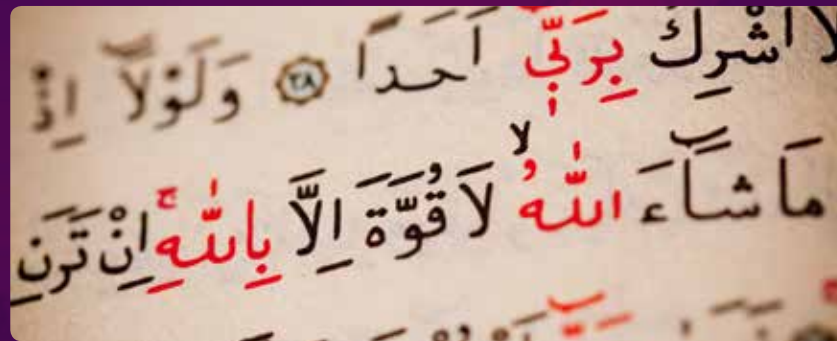 لَا اُشْرِكُ بِرَبّٖٓي اَحَداً ﴿٣٨﴾ وَلَوْلَٓا اِذْ
مَا شَٓاءَ اللّٰهُۙ لَا قُوَّةَ اِلَّا بِاللّٰهِۚ اِنْ تَرَنِ